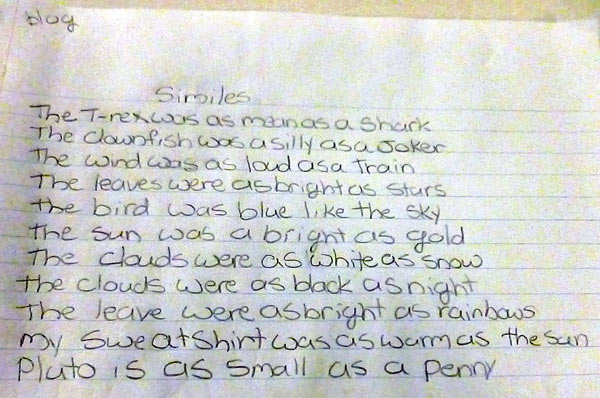 blog
Similes
The T-rex was as mean as a shark
The clownfish was a silly as a Joker
The wind was as loud as a train
The leaves were as bright as stars
the bird was blue like the sky
the sun was a bright as gold
The clouds were as white as snow
the clouds were as black as night
The leave were as bright as rainbows
my sweatshirt was as warm as the sun
Pluto is as small as a penny